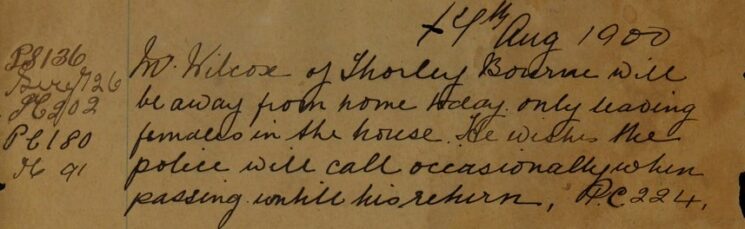 14th Aug 1900
PS136
Mr. Wilcox of Thorley Bourne will
Sergt 126
be away from home today. only leaving
PC 202
females in the house. He wishes the
PC180
police will call occasionally when
91
passing untill his return, P.C 224.